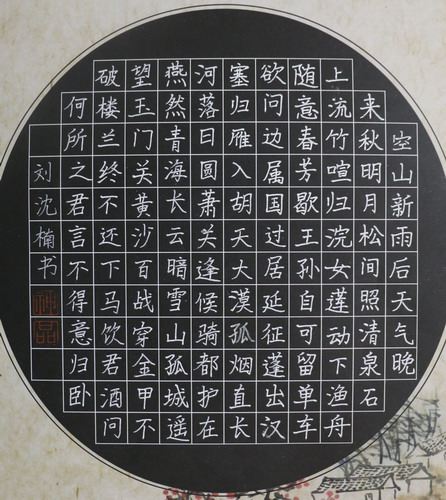 空山新雨后天气晚
来秋明月松间照清泉石
上流竹喧归浣女莲动下渔舟
随意春芳歇王孙自可留单车
欲问边属国过居延征蓬出汉
塞归雁入胡天大漠孤烟直长
河落日圆萧关逢候骑都护在
燕然青海长云暗雪山孤城遥
望玉门关黄沙百战穿金甲不
破楼兰终不还下马饮君酒问
何所之君言不得意归卧
刘沈楠书